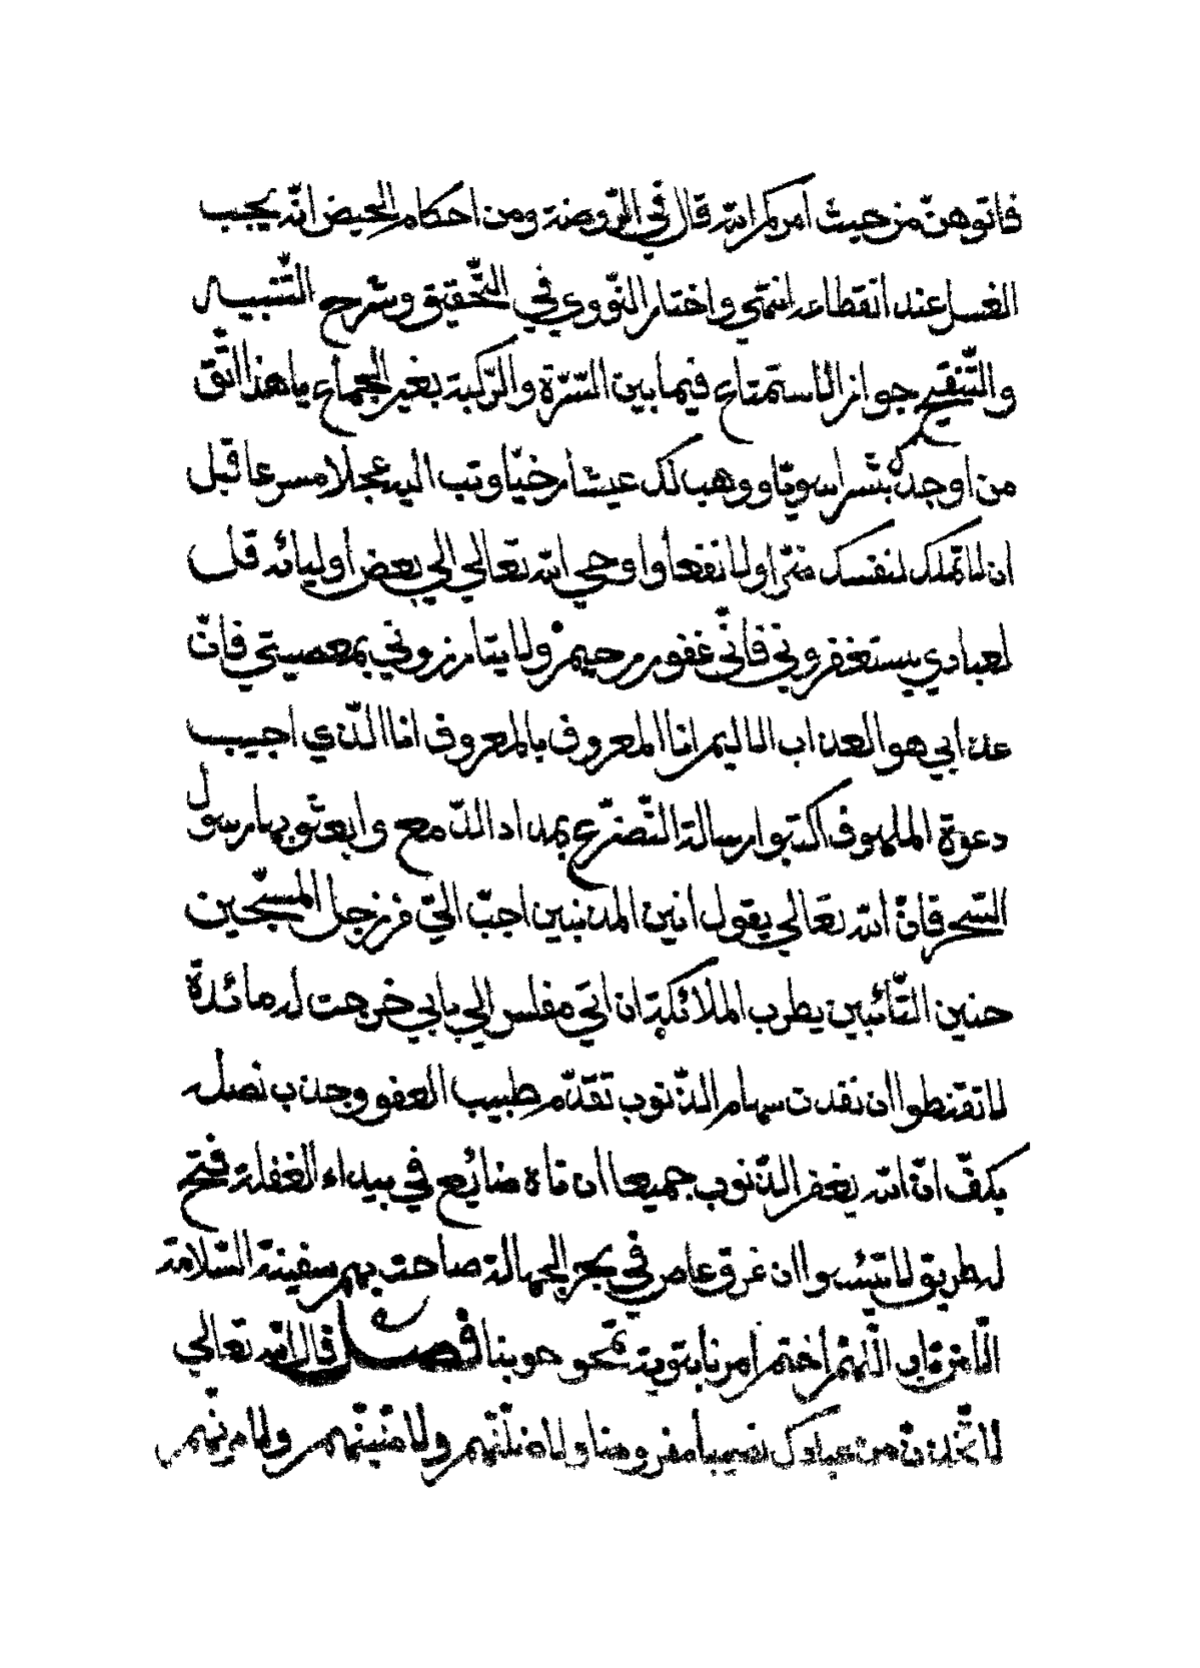 فاتوهنّ من حيث امركم الله قال في الرّوضة ومن احكام الحيض انّه يجب
الغسل عند انقطاعه انتهي واختار النّووي في التّحقيق وشرح التّنبيه
والتّنقيح جواز الاستمتاع فيما بين السّرّة والرّكبة بغير الجماع يا هذا اتّق
من اوجدك بشرا سويّا ووهب لك عيشا رخيّا وتب اليه عجلا مسرعا قبل
ان لا تملك لنفسك ضرّا ولا نفعا واوحي الله تعالي الي بعض اوليائه قل
لعبادي يستغفروني فانّي غفور رحيم ولا يتارزوني بمعصيتي فانّ
عذابي هو العذاب الاليم انا المعروف بالمعروف انا الّذي اجيب
دعوة الملهوف اكتبوا رسالة التّضرّع بمداد الدّمع وابعثوبها رسول
السّحر فانّ الله تعالي يقول انين المذنبين احبّ اليّ من زجل المسبّحين
حنين التّائبين يطرب الملائكة ان اتي مفلس الي بابي خرجت له مائدة
لا تقنطوا ان نفدت سهام الذّنوب تقدّم طبيب العفو وجذب نصله
بكفّ انّ الله يغفر الذّنوب جميعا ان تاه ضائع في بيداء الغفلة فتح
له طريق لا تيئسوا ان غرق عاص في بحر الجهالة صاحت بهم سفينة السّلامة
الّا من تاب اللّهمّ اختم امرنا بتوبة تمحو حوبنا فصل قال الله تعالي
لاتّخذنّ من عبادك نصيبا مفروضا ولاضلّنّهم ولامنّينّهم ولامرنّهم